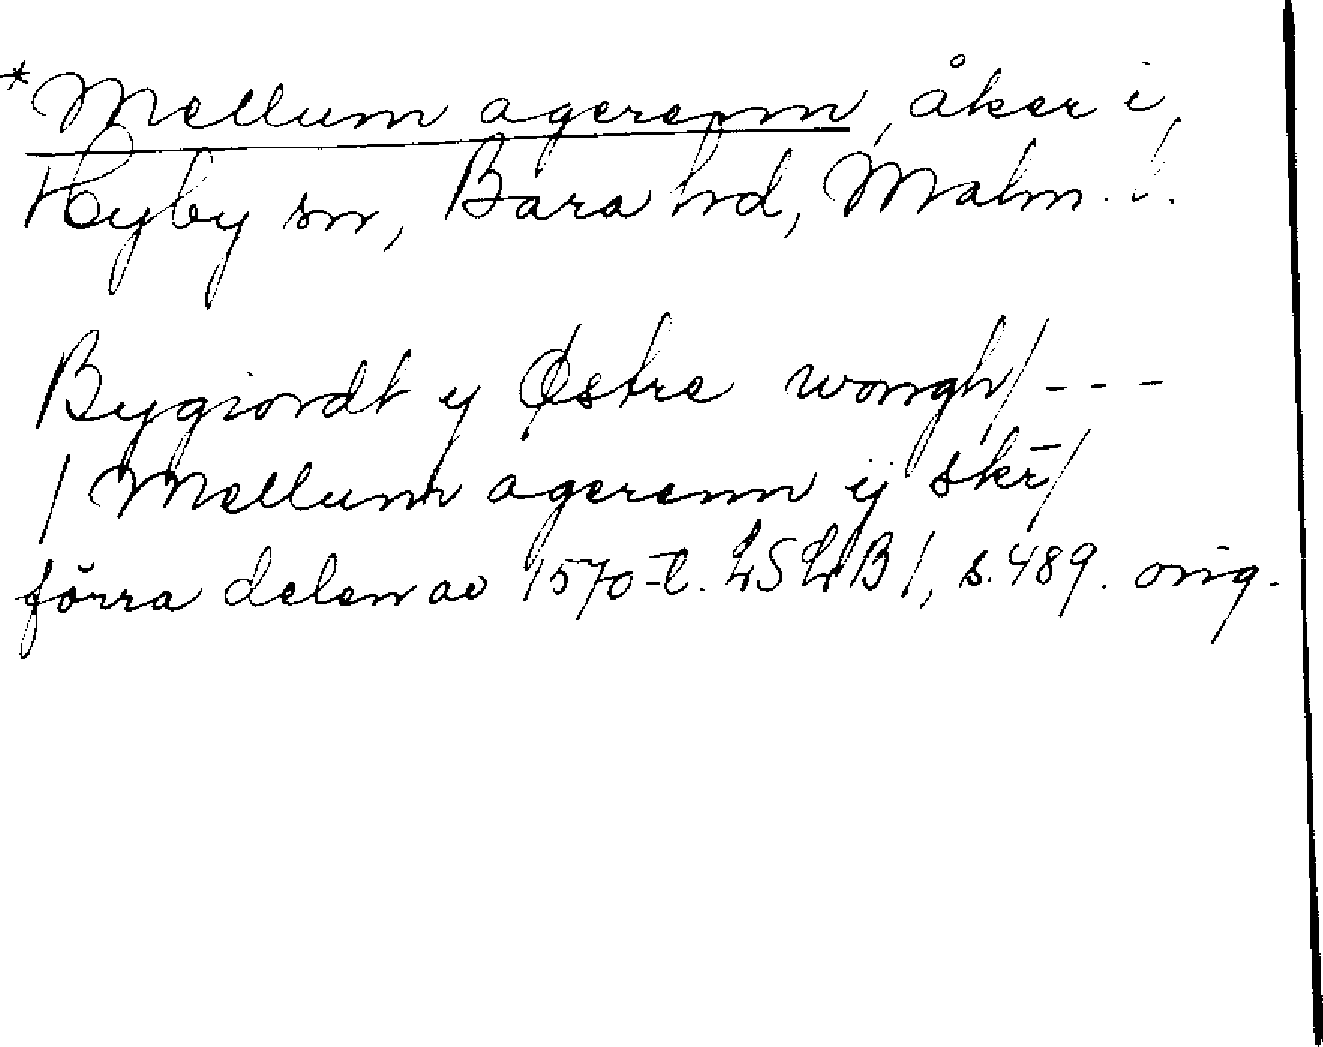 *Mellum agerenn, åker i
Hyby sn, Bara hd, Malm. l.
Bygiordt y Østre wongh/ - - -
/ Mellum agerenn ij skr̄/
förra delen av 1570-t. LSLB 1, s. 489. orig.